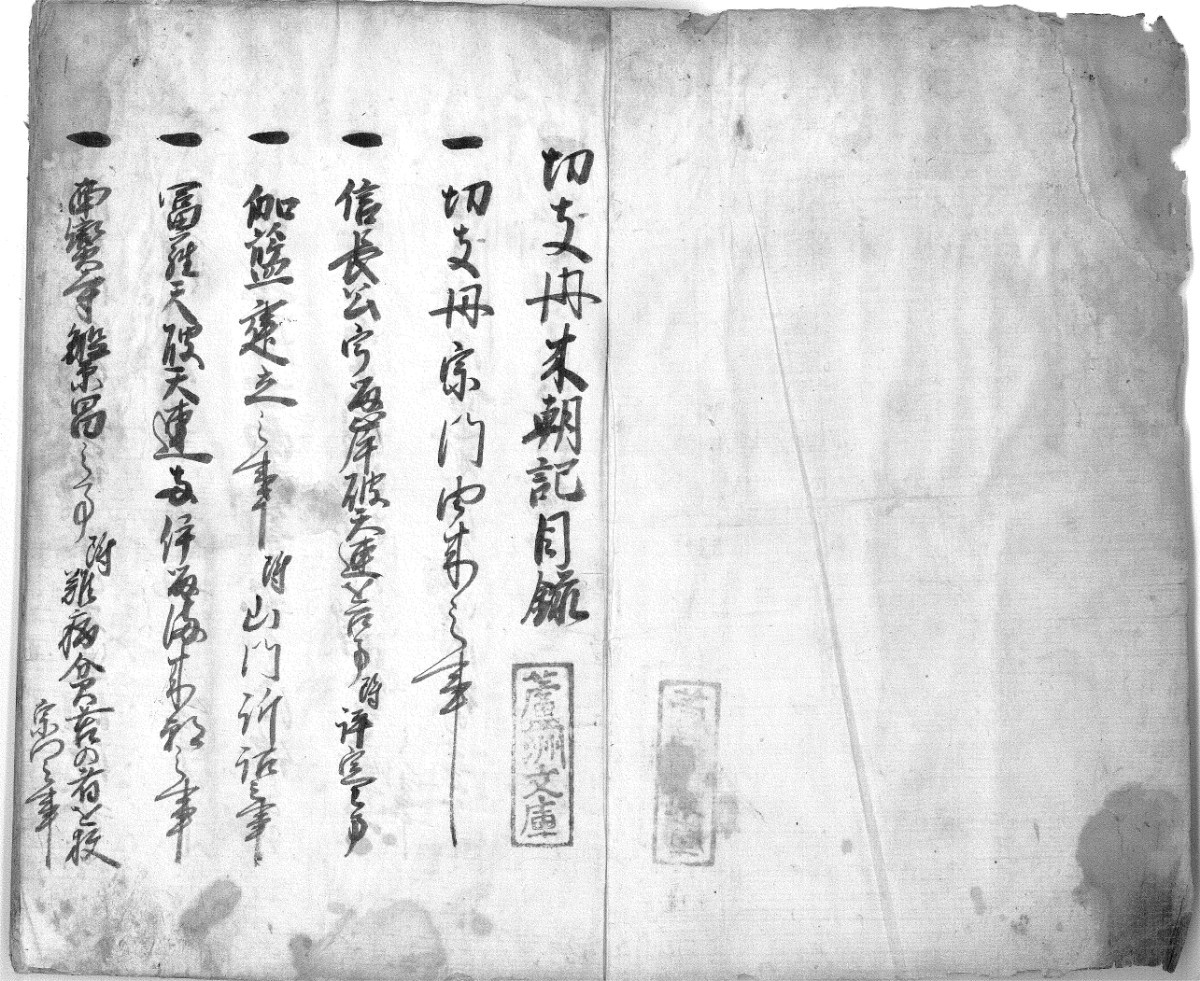 切支丹来朝記目録
蘆洲文庫
一 切支丹宗門由来之事
一 信長公宇留岸破天連を召事 附評定之事
一 伽藍建立之事 附山門訴詔之事
一 冨羅天破天連并伊留満来朝之事
一 南蛮寺繁昌之事 附難病貧苦の者を扶
宗門之事